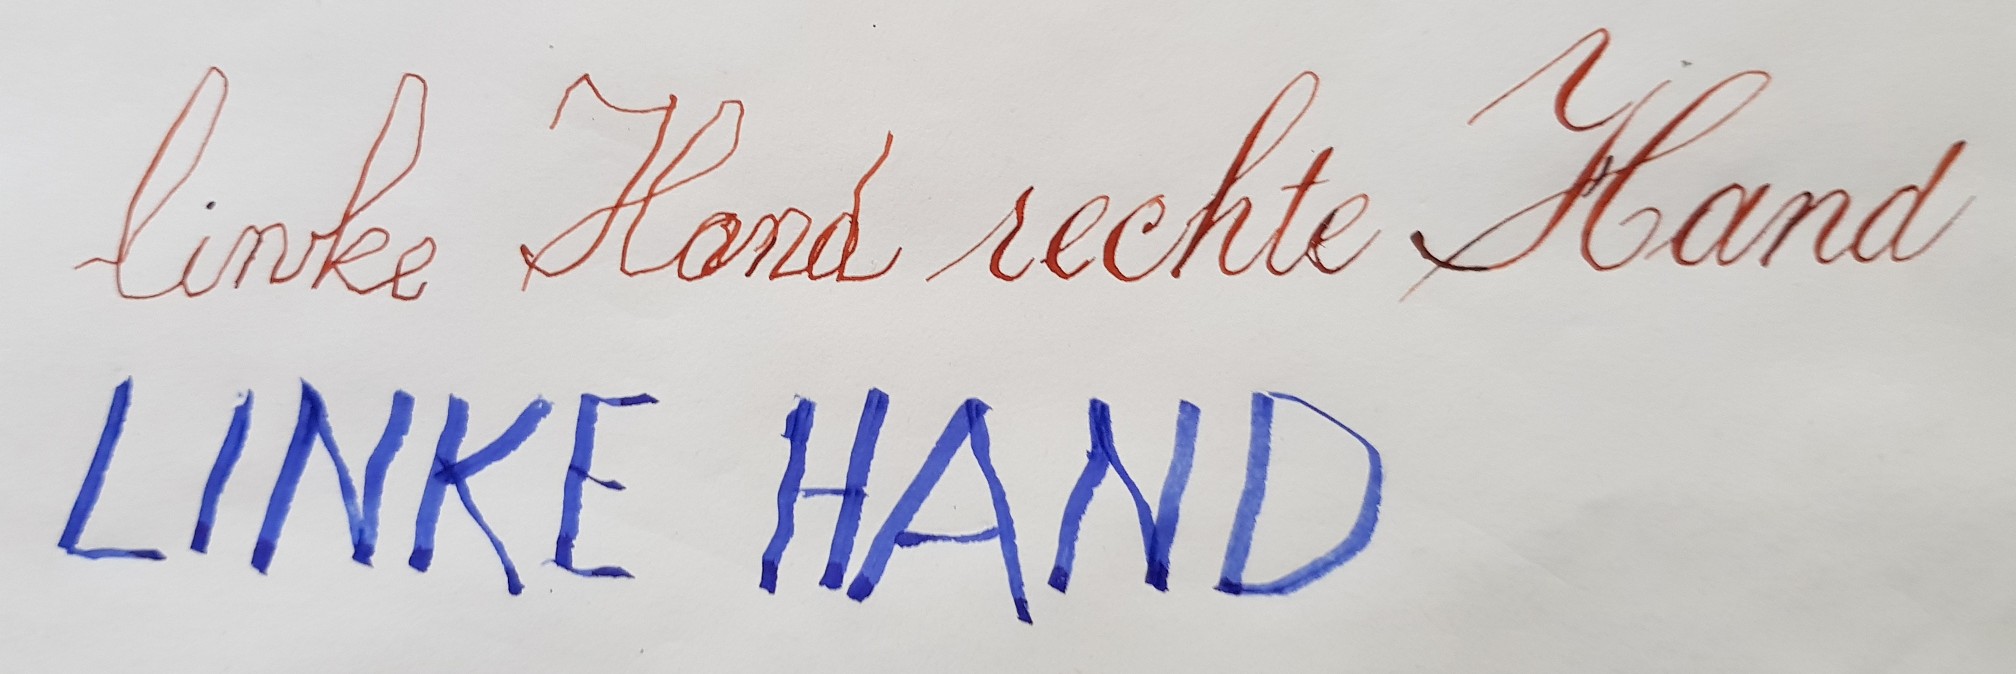 linke Hand rechte Hand
LINKE HAND